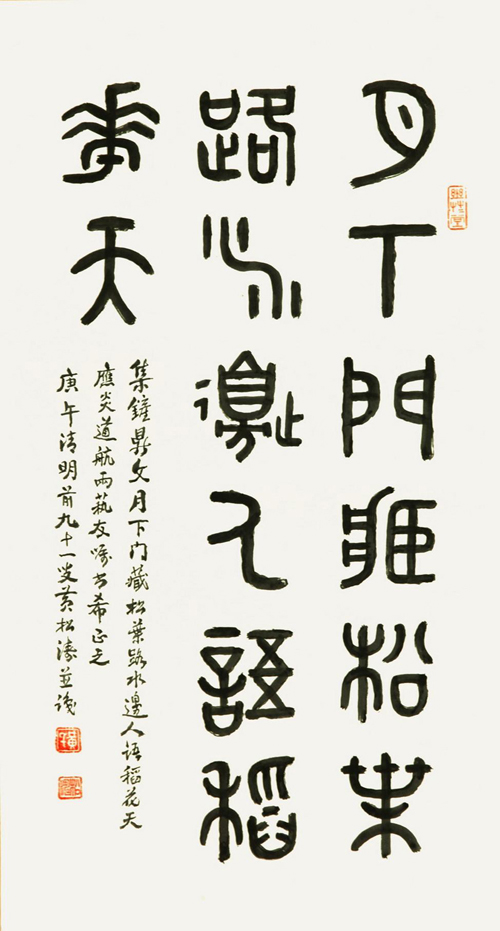 月下門臧松葉
路水邊人語稻
華天
集鐘鼎文月下门藏松葉路水邊人语稻花天
應炎道航兩藝友嘱书希正之
庚午清明前九十一叟黄松濤並識